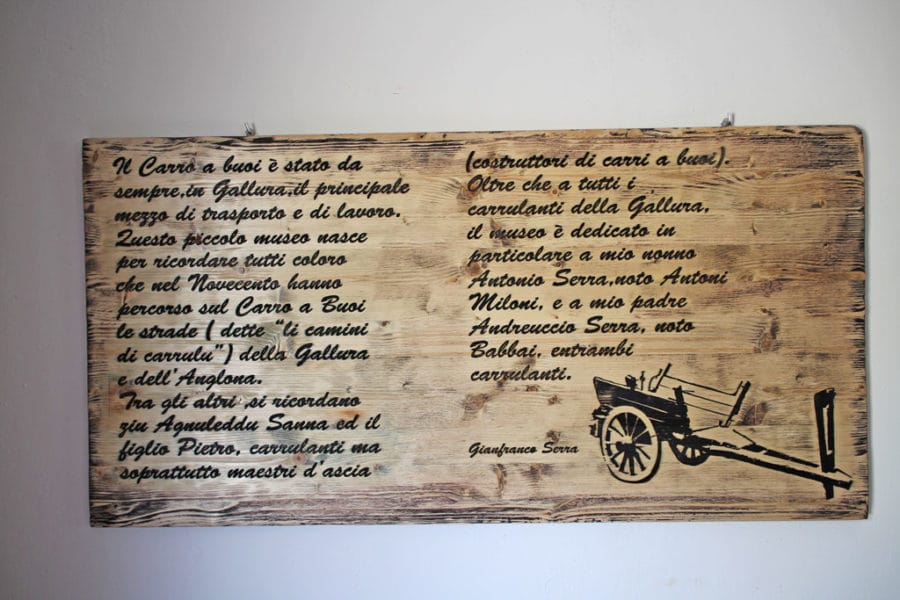 Il Carro a buoi è stato da
sempre,in Gallura,il principale
mezzo di trasporto e di lavoro.
Questo piccolo museo nasce
per ricordare tutti coloro
che nel Novecento hanno
percorso sul Carro a Buoi
le strade ( dette "li camini
di carrulu") della Gallura
e dell'Anglona.
Tra gli altri ,si ricordano
ziu Agnuleddu Sanna ed il
figlio Pietro, carrulanti ma
soprattutto maestri d'ascia
(costruttori di carri a buoi).
Oltre che a tutti i
carrulanti della Gallura,
il museo è dedicato in
particolare a mio nonno
Antonio Serra,noto Antoni
Miloni, e a mio padre
Andreuccio Serra, noto
Babbai, entrambi
carrulanti.
Gianfranco Serra